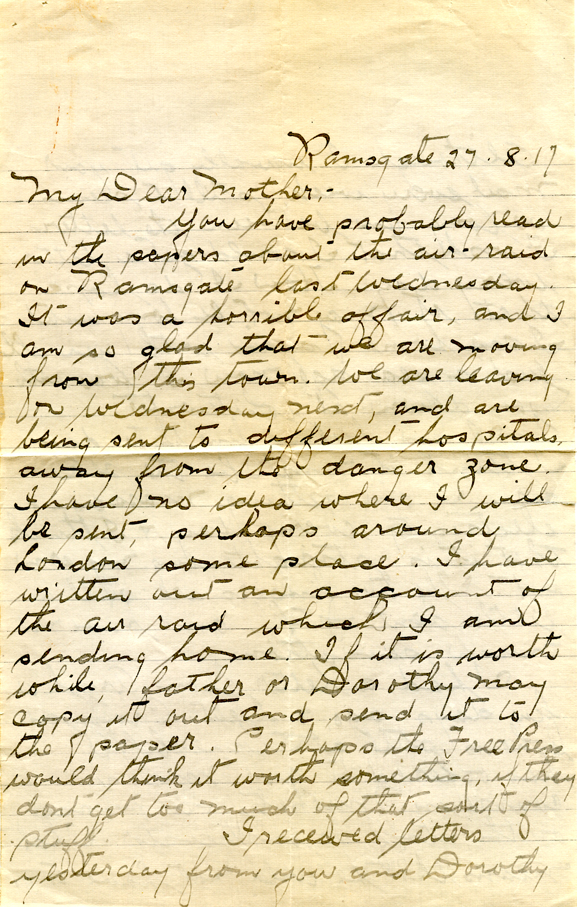 Ramsgate 27.8.17
My Dear Mother,-
You have probably read
in the papers about the air-raid
on Ramsgate last Wednesday.
It was a horrible affair, and I
am so glad that we are moving
from this town. We are leaving
on Wednesday next, and are
being sent to different hospitals,
away from the danger zone.
I have no idea where I will
be sent, perhaps around
London some place. I have
written out an account of
the air raid which I am
sending home. If it is worth
while, father or Dorothy may
copy it out and send it to
the paper. Perhaps the Free Press
would think it worth something, if they
dont get too much of that sort of
stuff I received letters
yesterday from you and Dorothy